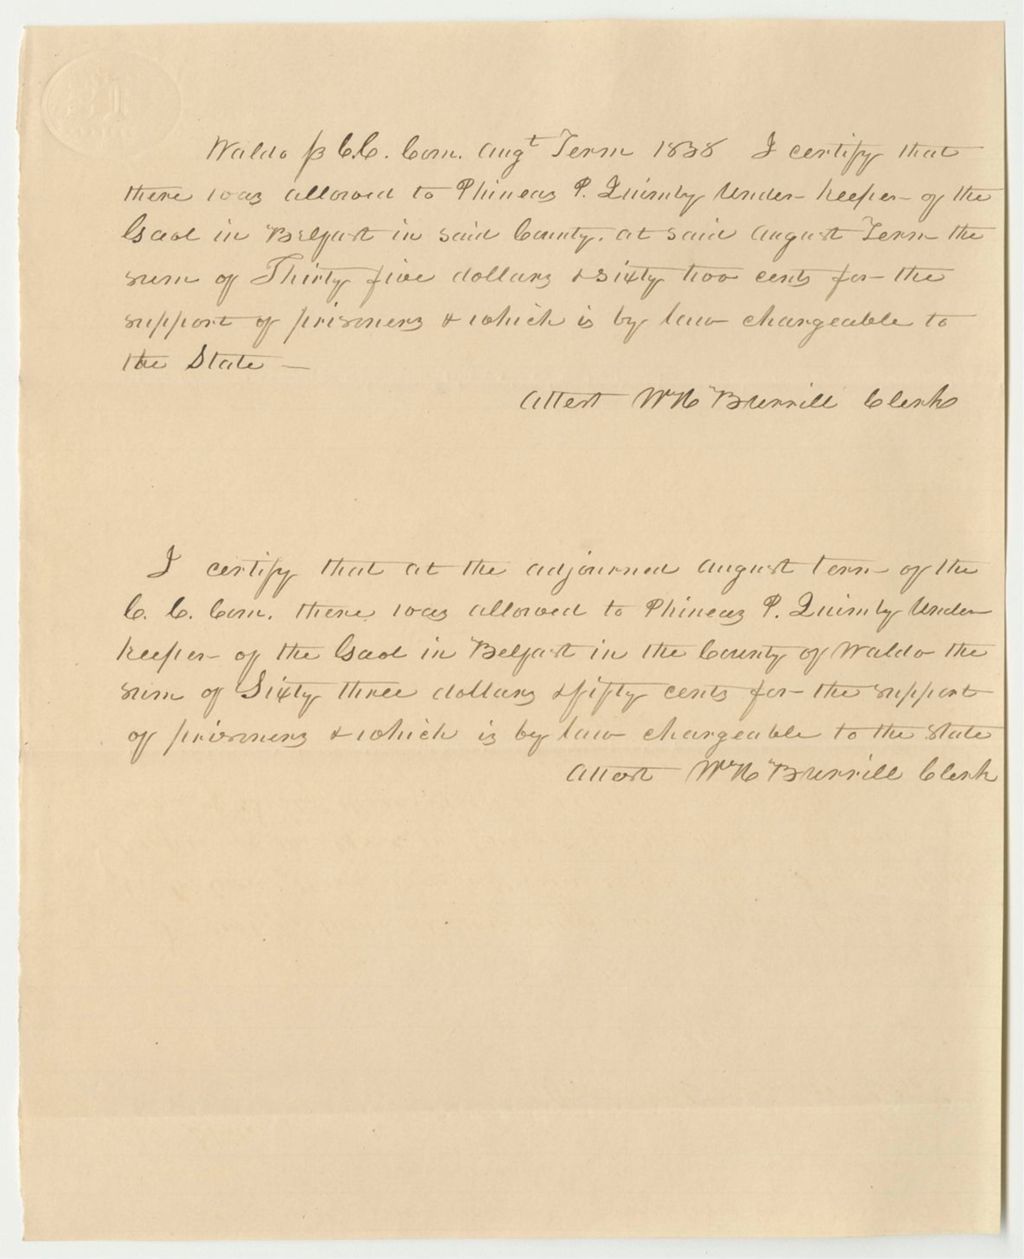 Waldo ss C.C. Com. Augt Term 1838 I certify that
there was allowed to Phineas P. Quimby Under-keeper of the
Gaol in Belfast in said County. at said August Term the
sum of Thirty five dollars & sixty two cents for the
support of prisoners & which is by law chargeable to
the State —
Attest Wm H Burrill Clerk
I certify that at the adjourned August term of the
C. C. Com. there was allowed to Phineas P. Quimby Under
keeper of the Gaol in Belfast in the County of Waldo the
sum of Sixty three dollars & fifty cents for the support
of prisoners & which is by law chargeable to the State
Attest Wm H Burrill Clerk